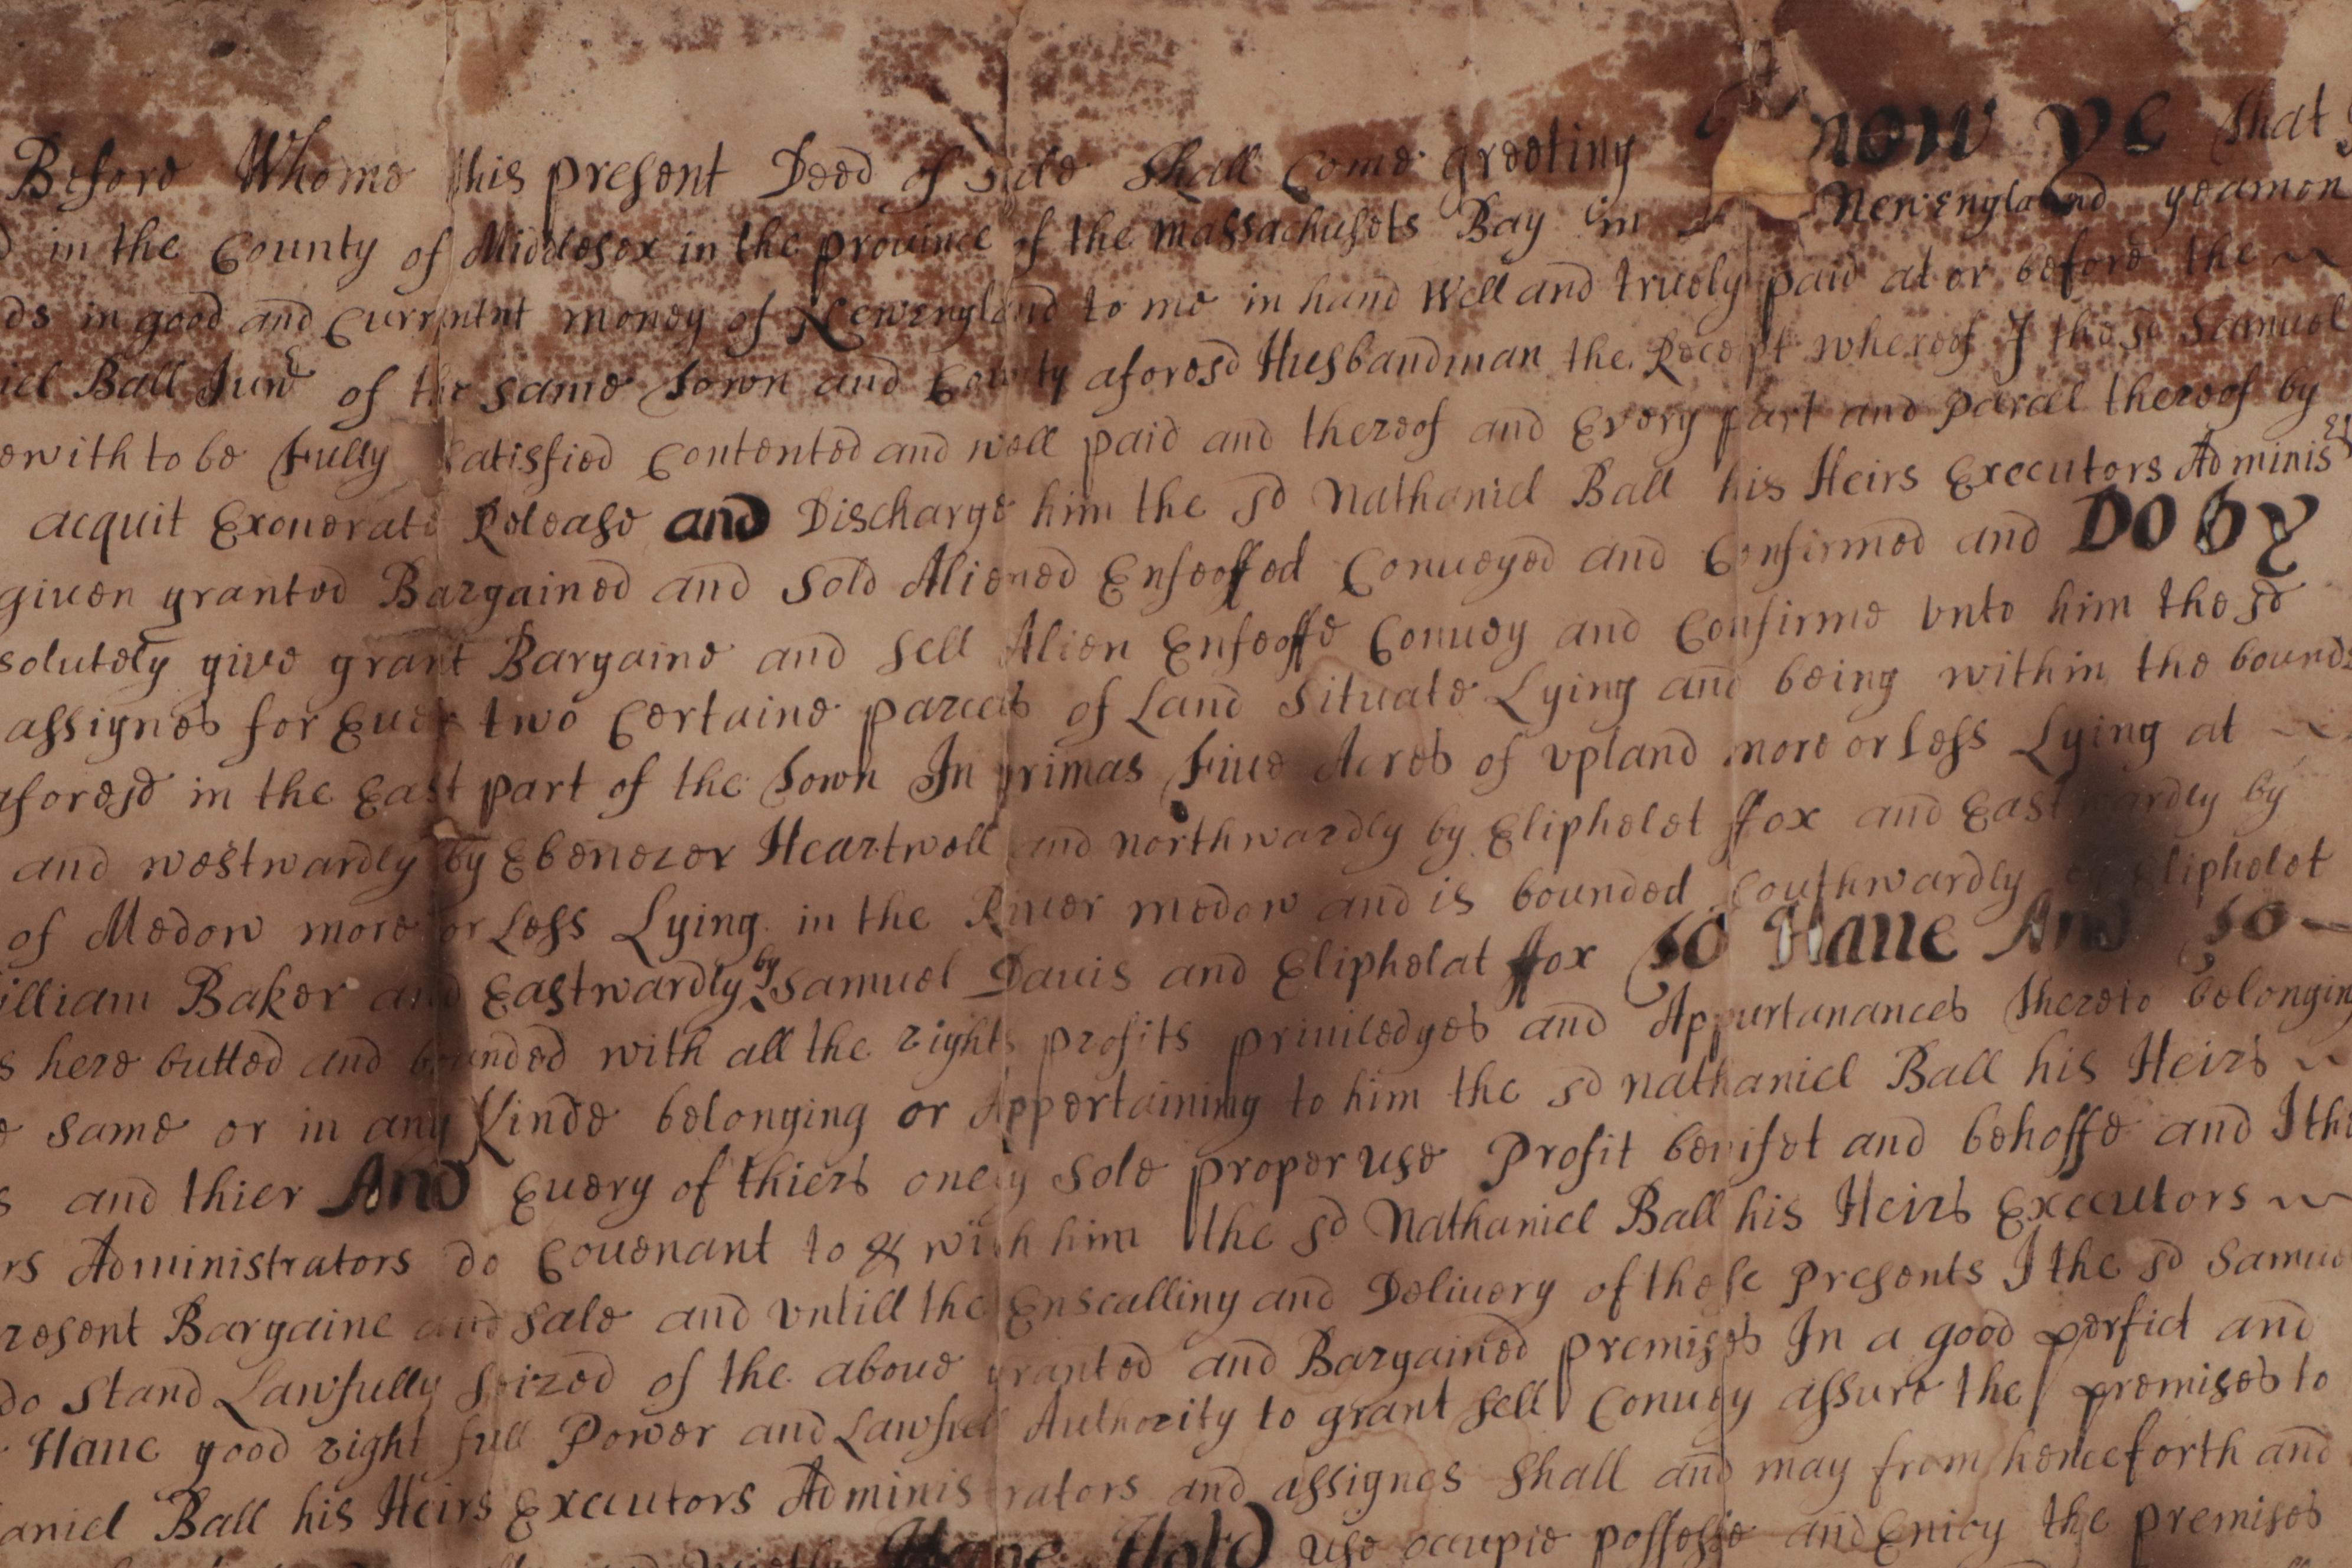 Before Whome this present Deed of Sale Shall Come greeting Know ye that
in the County of Middlesex in the prouince of the massachusets Bay in Newengland yeamon
ds in good and Currintnt money of Newengland to me in hand Well and truely paid at or before the
iel Ball Junr of the same Town and County aforesd Husbandman the Receipt whereof I those Samuel
ewith to be Fully Satisfied Contented and well paid and thereof and Every part and parcel thereof by
acquit Exonerate Release and Discharge him the sd Nathaniel Ball his Heirs Executors Adminis
giuen granted Bargained and Sold Aliened Enfeoffed Conueyed and Confirmed and Do by
solutely give grant Bargaine and Sell Alien Enfeoffe Conuey and Confirme vnto him the sd
assignes for Euer two Certaine parcels of Land Situate Lying and being within the bounds
aforesd in the East part of the Town In primas Fiue Acres of vpland more or Less Lying at
and westwardly by Ebenezer Heartwell and northwardly by Eliphelet ffox and Eastwardly by
of Medow more or Less Lying in the Riuer medow and is bounded Southwardly by Eliphelet
illiam Baker and Eastwardly by Samuel Dauis and Eliphelat ffox To Haue And To
s here butted and bounded with all the rights profits priuiledges and Appurtanances thereto belonging
e same or in any Kinde belonging or Appertaining to him the sd nathaniel Ball his Heirs
s and thier And Euery of thiers onely Sole proper use Profit benifet and behoffe and I the
rs Administrators do Couenant to & with him the sd Nathaniel Ball his Heirs Executors
resent Bargaine and Sale and vntill the Enscalling and Deliuery of these Presents I the sd Samue
do Stand Lawfully Seized of the aboue granted and Bargained premises In a good perfict and
Haue good right full Power and Lawfull Authority to grant Sell Conuey assure the premises to
aniel Ball his Heirs Executors Administrators and assignes Shall and may from henceforth and
Haue Hold use occupie possesse and Enioy the premises